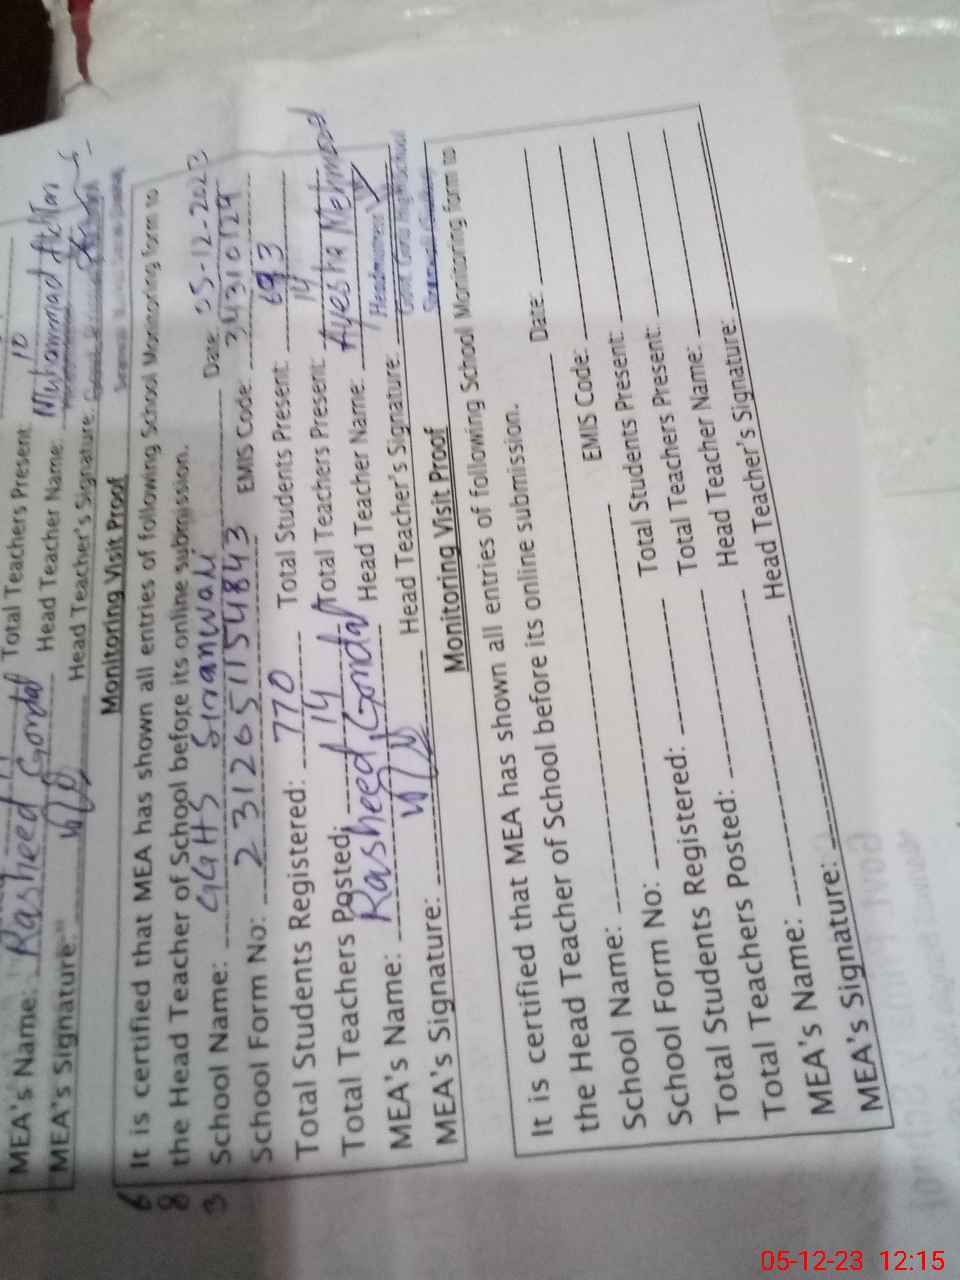 Total Teachers Present: 10
MEA's Name: Rasheed Gondal Head Teacher Name: Muhammad Akhtar
MEA's Signature: Head Teacher's Signature:
Monitoring Visit Proof
6 It is certified that MEA has shown all entries of following School Monitoring form to
8 the Head Teacher of School before its online submission.
3 School Name: GGHS Siranwali Date: 05-12-2023
School Form No: 2312051154843 EMIS Code: 34310129
Total Students Registered: 770 Total Students Present: 693
Total Teachers Posted: 14 Total Teachers Present: 14
MEA's Name: Rasheed Gondal Head Teacher Name: Ayesha Mehmood
MEA's Signature: Head Teacher's Signature: Headmistress
Govt. Girls High School
Monitoring Visit Proof
It is certified that MEA has shown all entries of following School Monitoring form to
the Head Teacher of School before its online submission.
School Name: Date:
School Form No: EMIS Code:
Total Students Registered: Total Students Present:
Total Teachers Posted: Total Teachers Present:
MEA's Name: Head Teacher Name:
MEA's Signature: Head Teacher's Signature:
05-12-23 12:15